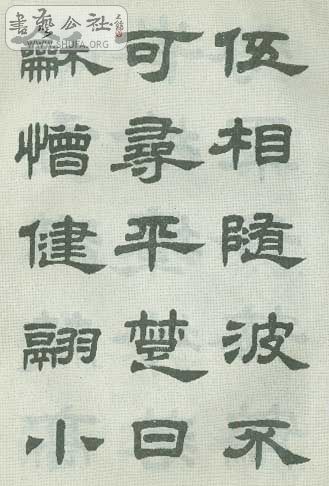 伍相隨波不
可尋平楚日
龢憎健翮小
書藝公社
WWW.SHUFA.ORG